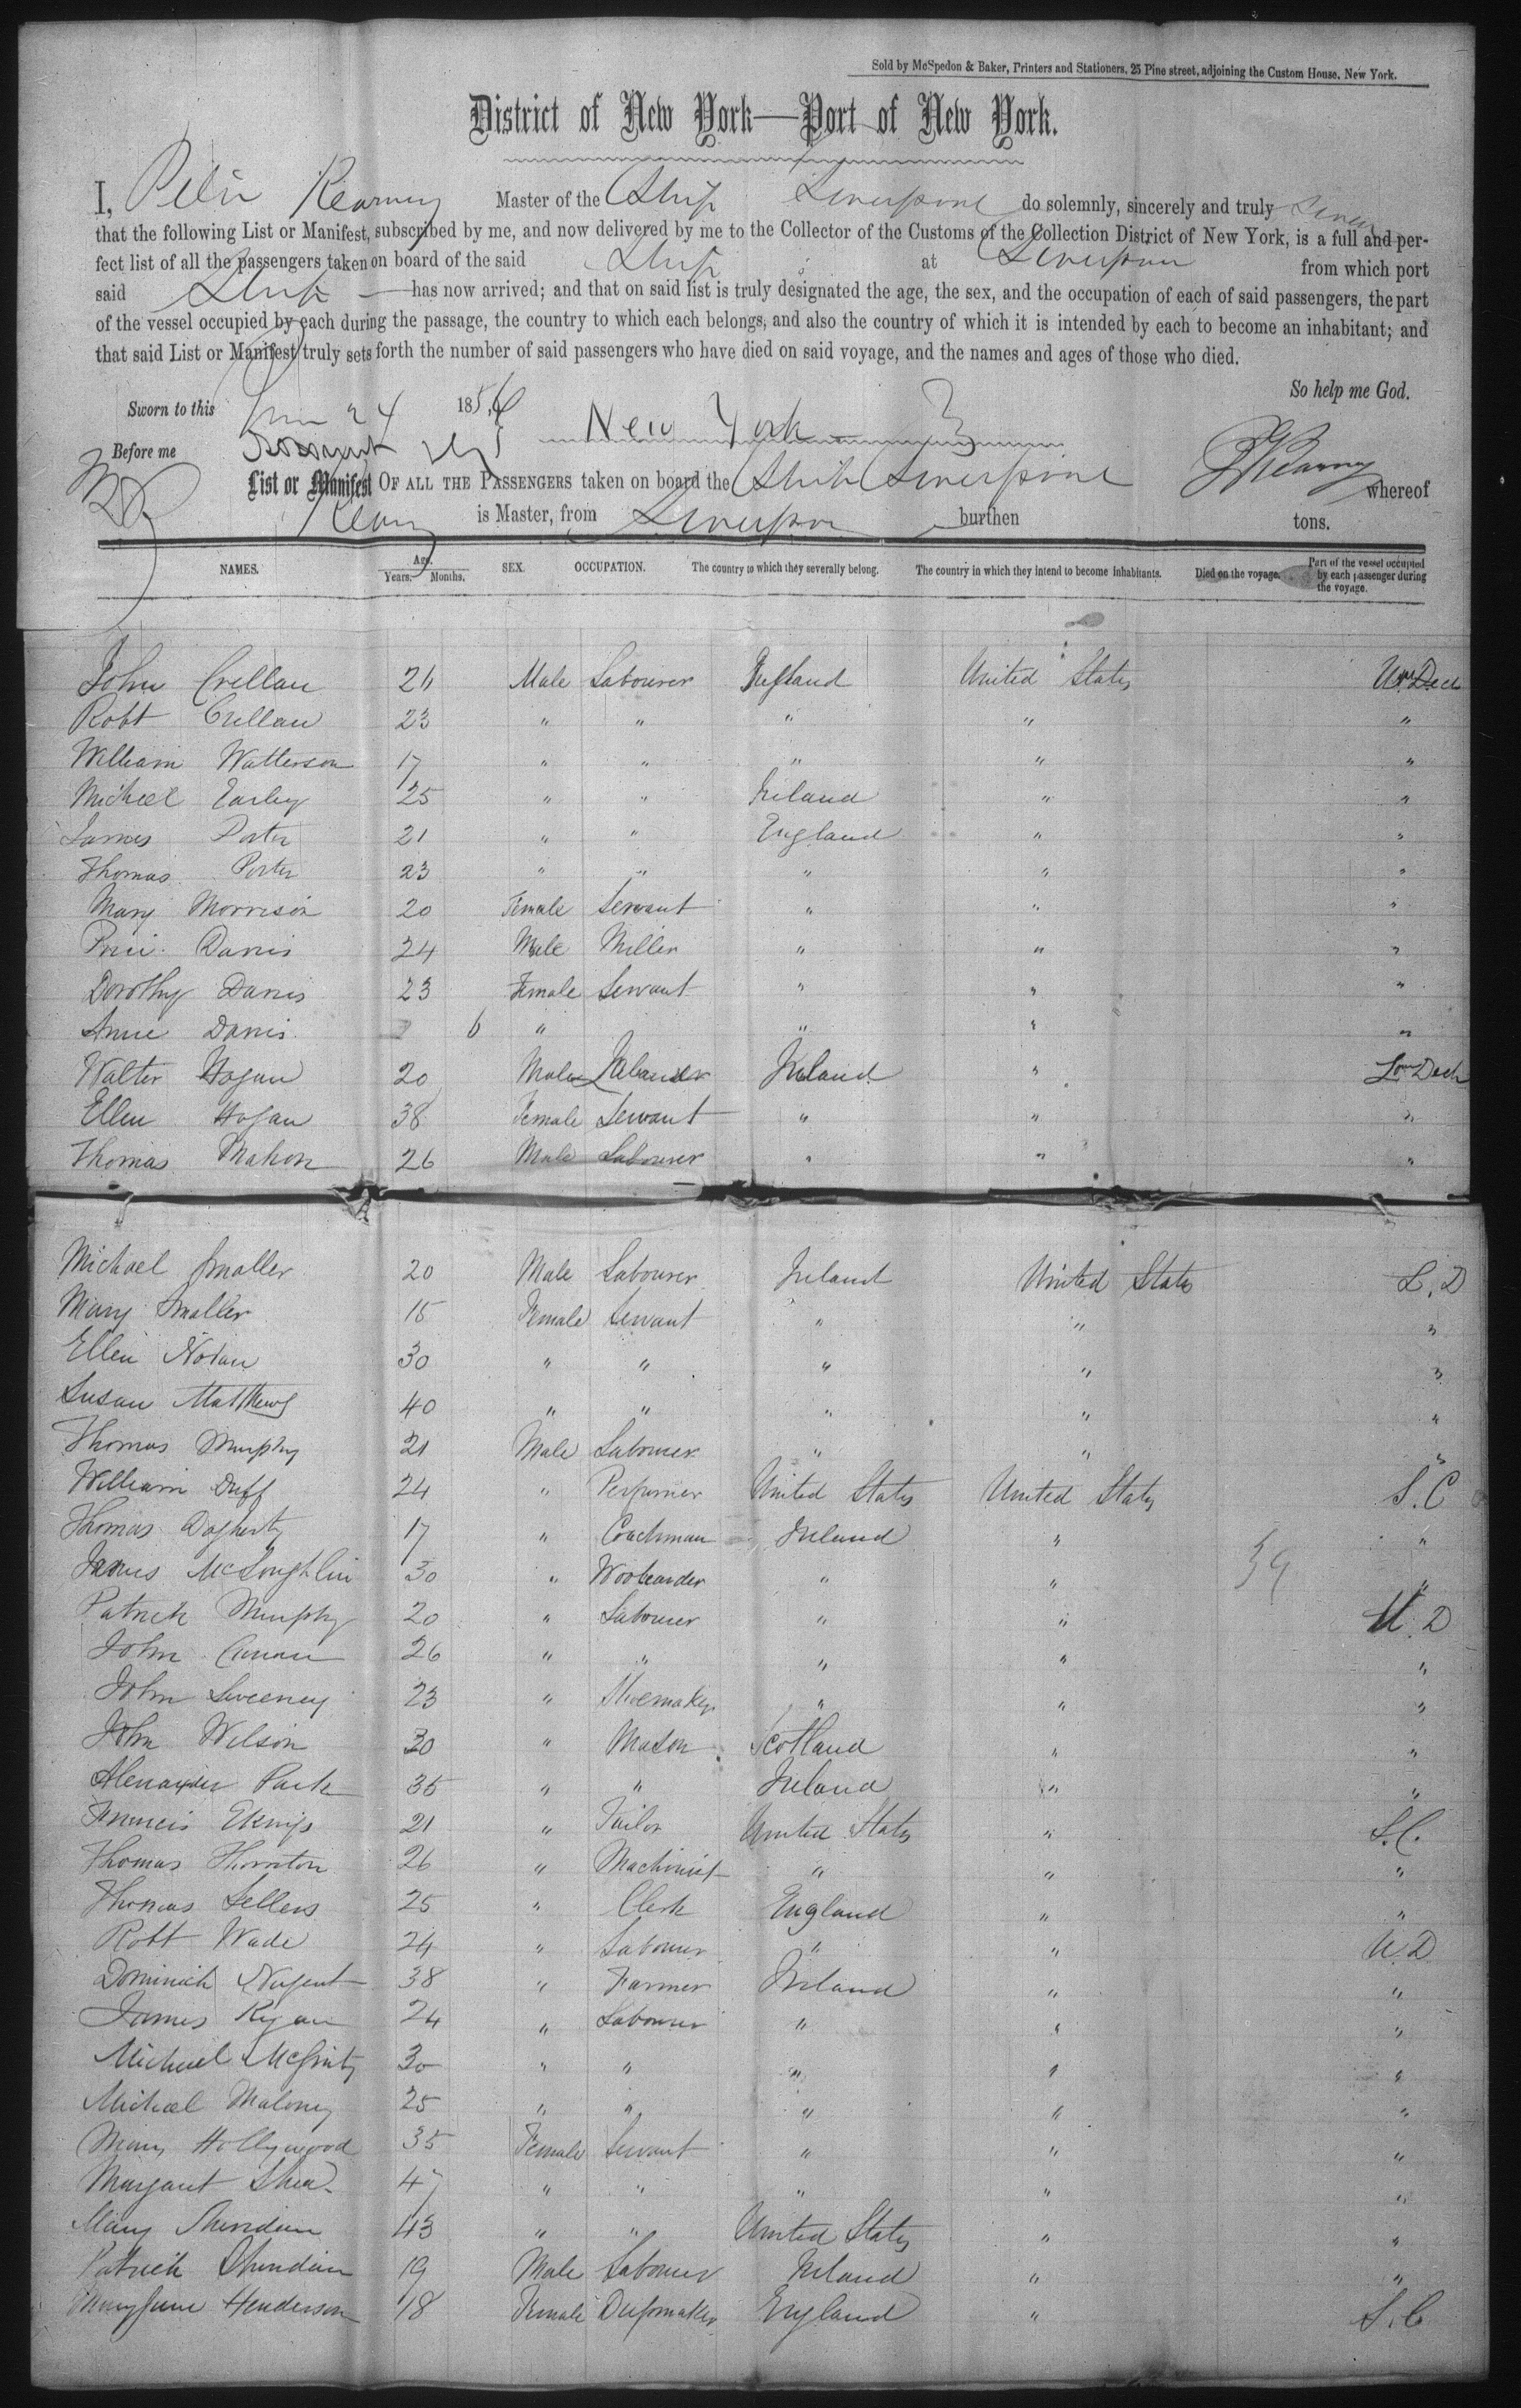 Sold by McSpedon & Baker, Printers and Stationers, 25 Pine street, adjoining the Custom House, New York.
District of New York—Port of New York.
I, Peter Kearney Master of the Ship Liverpool do solemnly, sincerely and truly swear
that the following List or Manifest, subscribed by me, and now delivered by me to the Collector of the Customs of the Collection District of New York, is a full and per-
fect list of all the passengers taken on board of the said Ship at Liverpool from which port
said Ship has now arrived; and that on said list is truly designated the age, the sex, and the occupation of each of said passengers, the part
of the vessel occupied by each during the passage, the country to which each belongs, and also the country of which it is intended by each to become an inhabitant; and
that said List or Manifest truly sets forth the number of said passengers who have died on said voyage, and the names and ages of those who died.
So help me God.
Sworn to this 24 185
Before me New York
P Kearney
List or Manifest OF ALL THE PASSENGERS taken on board the Ship Liverpool whereof
Kearny is Master, from Liverpool burthen tons.
NAMES. Age. Years. Months. SEX. OCCUPATION. The country to which they severally belong. The country in which they intend to become inhabitants. Died on the voyage. Part of the vessel occupied by each passenger during the voyage.
John Crellan 26 Male Labourer England United States Upr Deck
Robt Crellan 23 " " " " "
William Watterson 17 " " " " "
Michael Earley 25 " " Ireland " "
James Porter 21 " " England " "
Thomas Porter 23 " " " " "
Mary Morrison 20 Female Servant " " "
Davis 24 Male Miller " " "
Dorothy Davis 23 Female Servant " " "
Anne Davis 6 " " " "
Walter Hogan 20 Male Labourer Ireland " Lowr Deck
Ellen Hogan 38 Female Servant " " "
Thomas Mahon 26 Male Labourer " " "
Michael Smaller 20 Male Labourer Ireland United States L.D
Mary Smaller 15 Female Servant " " "
Ellen Nolan 30 " " " " "
Susan Matthews 40 " " " " "
Thomas Murphy 21 Male Labourer " " "
William Duff 24 " Perfumer United States United States S.C
Thomas Dogherty 17 " Coachman Ireland " "
James McLoughlin 30 " Woolcarder " " "
39
Patrick Murphy 20 " Labourer " " U.D
John 26 " " " " "
John Sweeney 23 " Shoemaker " " "
John Wilson 30 " Mason Scotland " "
Alexander Park 35 " " Ireland " "
Francis 21 " Tailor United States " S.C.
Thomas Thornton 26 " Machinist " " "
Thomas Sellers 25 " Clerk England " "
Robt Wade 24 " Labourer " " U.D
Dominick Nugent 38 " Farmer Ireland " "
James Ryan 24 " Labourer " " "
Michael McGinty 30 " " " " "
Michael Maloney 25 " " " " "
Mary Hollywood 35 Female Servant " " "
Margaret Shea 47 " " " " "
Mary Sheridan 43 " " United States " "
Patrick Sheridan 19 Male Labourer Ireland " "
Mary Jane Henderson 18 Female Dressmaker England " S.C